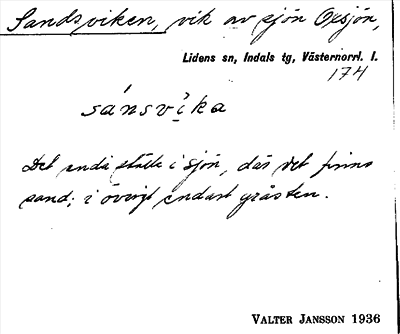 Sandsviken, vik av sjön Oxsjön,
Lidens sn, Indals tg, Västernorrl. l.
174
sánsvi̬̍ka
Det enda ställe i sjön, där det finns
sand; i övrigt endast gråsten.
VALTER JANSSON 1936